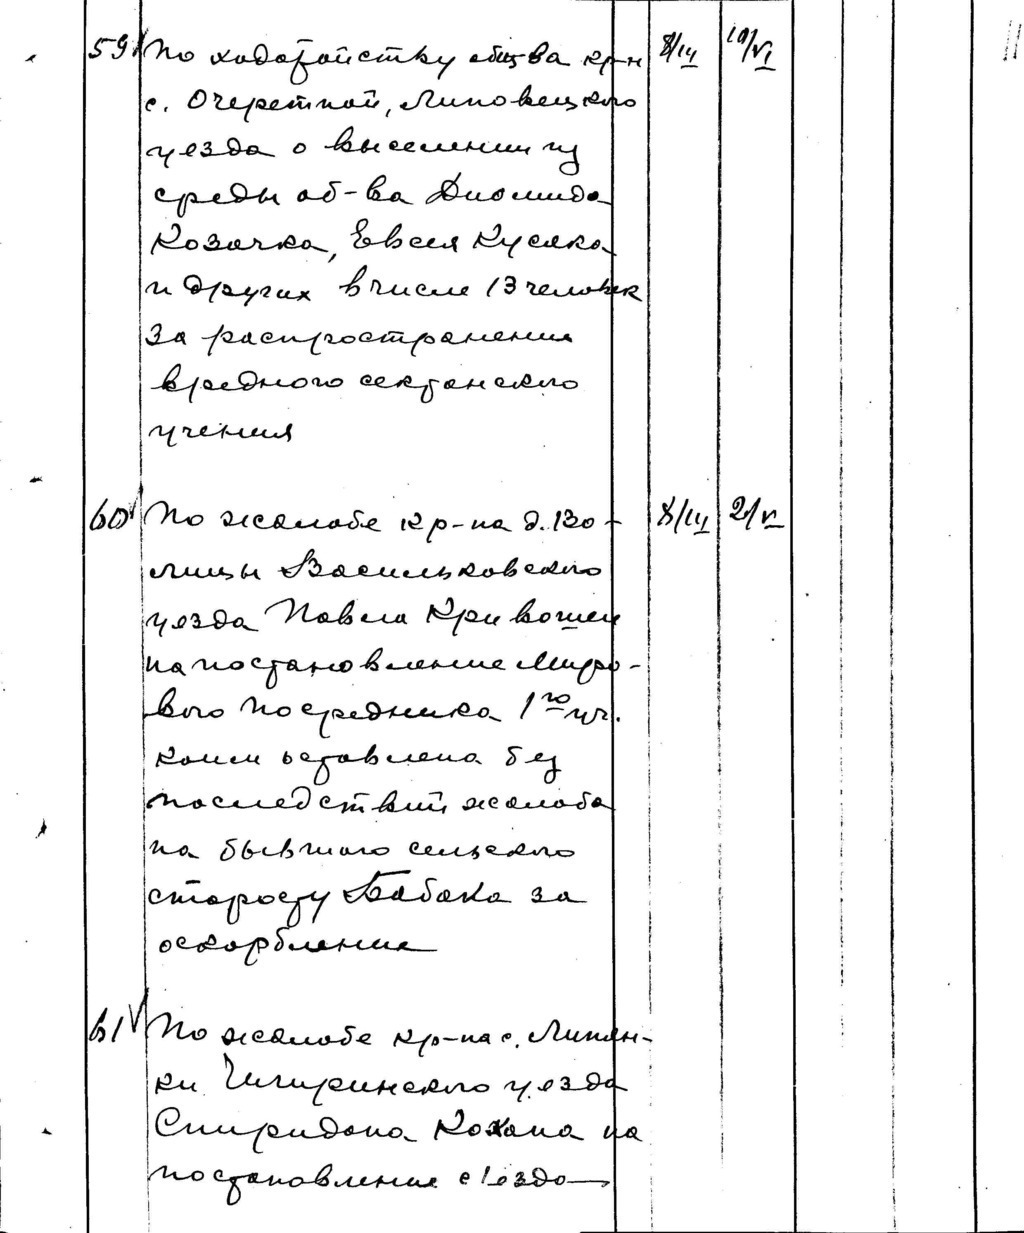 59 По ходатайству общ-ва кр-н 8/III 10/VI
с. Очеретной, Липовецкого
уезда о выселении из
среды об-ва Диомида
Козачка, Евсея Кусяка
и других в числе 13 человек
за распространения
вредного сектанского
учения
60 По жалобе кр-на д. Во-
лицы Васильковского
уезда Павла Кривошеи
на постановление Миро-
вого посредника 1го уч.
коим оставлена без
последствий жалоба
на бывшого сельского
старосту Бабака за
оскорбление
8/III 2/VI
61 По жалобе кр-на с. Липян-
ки Чигиринского уезда
Спиридона Кохана на
постановление с'езда